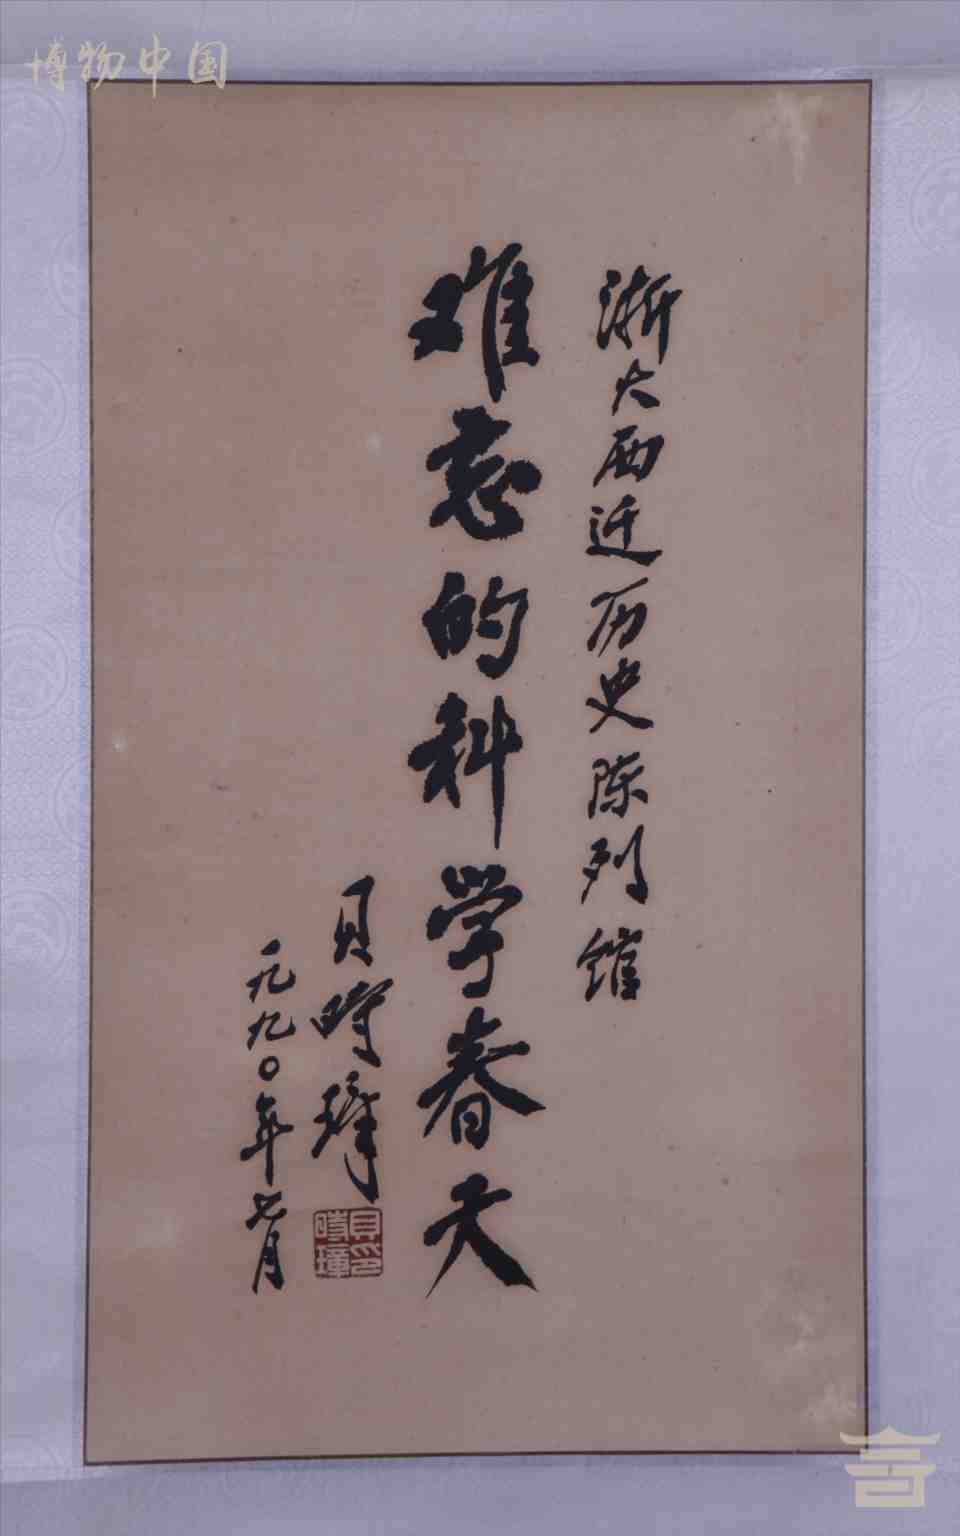 博物中国
浙大西迁历史陈列馆
难忘的科学春天
贝时璋
一九九〇年七月
贝时璋印